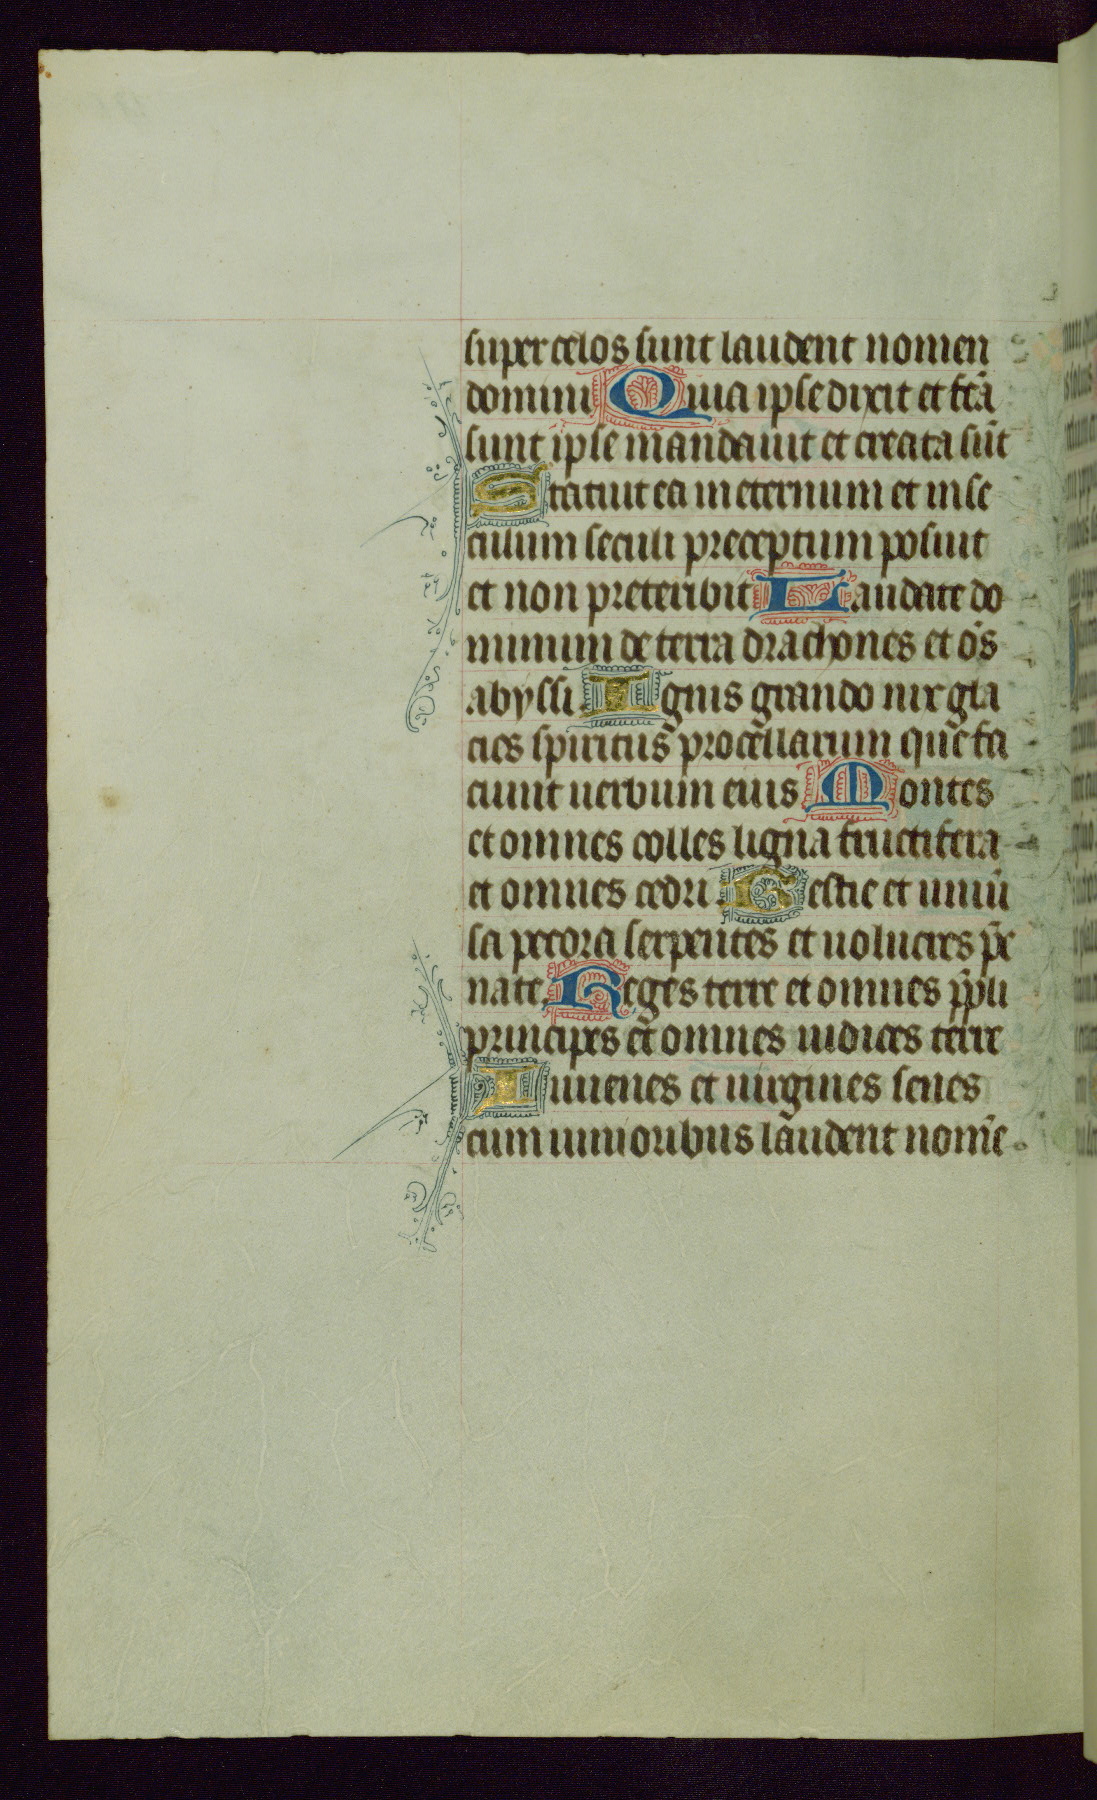 super celos sunt laudent nomen
domini Quia ipse dixit et fc̄a
sunt ipse mandauit et creata sūt
Statuit ea in eternum et in se
culum seculi preceptum posuit
et non preteribit Laudate do
minum de terra drachones et om̄s
abyssi Ignis grando nix gla
cies spiritus procellarum que fa
ciunt uerbum eius Montes
et omnes colles ligna fructifera
et omnes cedri Bestie et uniū
sa pecora serpentes et uolucres pē
nate Reges terre et omnes pp̄li
principes et omnes iudices terre
Iuuenes et uirgines senes
cum iunioribus laudent nom̄e